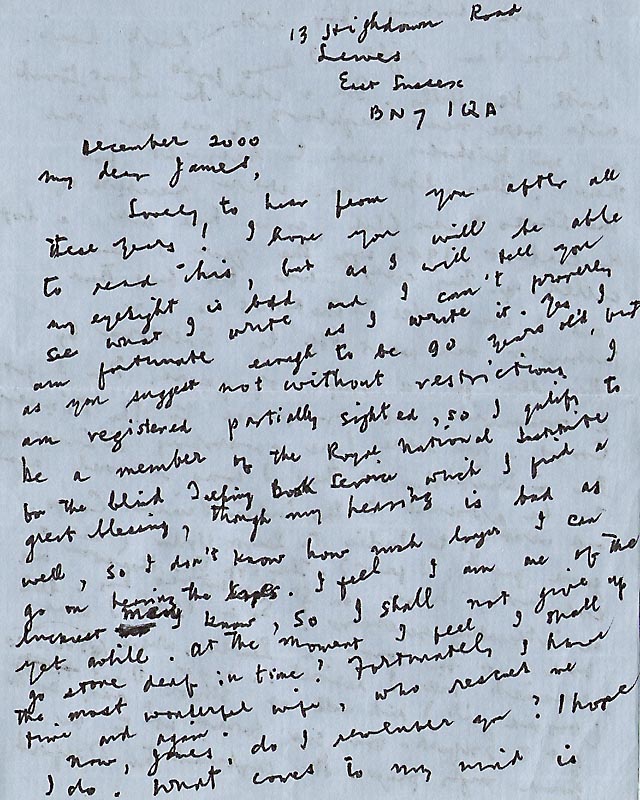 13 Highdown Road
Lewes
East Sussex
BN7 1QA
December 2000
My dear James,
Lovely to hear from you after all
these years! I hope you will be able
to read this, but as I will tell you
my eyesight is bad and I can't properly
see what I write as I write it. Yes, I
am fortunate enough to be 90 years old, but
as you suggest not without restrictions. I
am registered partially sighted, so I qualify to
be a member of the Royal National Institute
for the blind Talking Book Service which I find a
great blessing, though my hearing is bad as
well, so I don't know how much longer I can
go on hearing the tapes. I feel I am one of the
luckiest men I know, so I shall not give up
yet awhile. At the moment I feel I shall
go stone deaf in time! Fortunately I have
the most wonderful wife, who rescues me
time and again.
Now, James, do I remember you? I hope
I do. What comes to my mind is